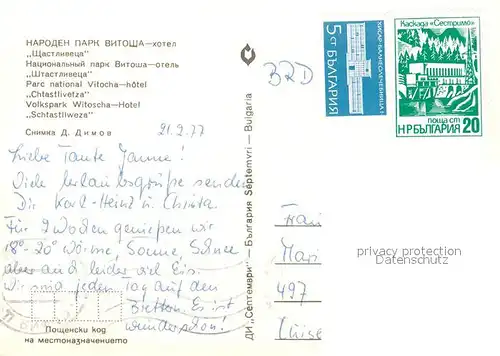 НАРОДЕН ПАРК ВИТОША—хотел
„Щастливеца"
Национальный парк Витоша—отель
„Штастливеца"
Parc national Vitocha—hôtel
„Chtastlivetza"
Volkspark Witoscha—Hotel
„Schtastliweza"
Снимка Д. Димов
21.2.77
Liebe Tante Janne!
Viele Urlaubsgrüße senden
Dir Karl-Heinz u. Christa.
Für 2 Wochen genießen wir
18°-20° Wärme, Sonne, Schnee
aber auch leider viel Eis.
Wir sind jeden Tag auf den
Brettern. Es ist
wunderschön!
Пощенски код
на местоназначението
ДИ „Септември" — България Septemvri — Bulgaria
BRD
5 СТ. БЪЛГАРИЯ
ХИСАР-БАЛНЕОЛЕЧЕБНИЦАТА
Каскада „Сестримо"
поща ст
НР БЪЛГАРИЯ 20
Frau
Mari
497
privacy protection
www.akpool.co.uk